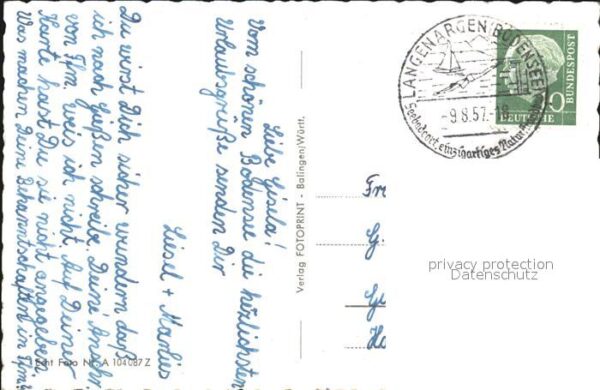 Liebe Gisela!
Vom schönen Bodensee die herzlichsten
Urlaubsgrüße senden Dir
Liesl + Markus
Du wirst Dich sicher wundern daß
ich nach Gießen schreibe. Deine Ansch.
von Ffm. weis ich nicht. Auf Deiner
Karte hast Du sie nicht angegeben.
Was machen Deine Bekanntschaften in Ffm.
Echt Foto Nr. A 104087 Z
Verlag FOTOPRINT - Balingen/Württ.
LANGENARGEN BODENSEE
-9.8.57.-18
Seebadeort, einzigartiges
DEUTSCHE
BUNDESPOST
10
Fr
G.
privacy protection
Datenschutz